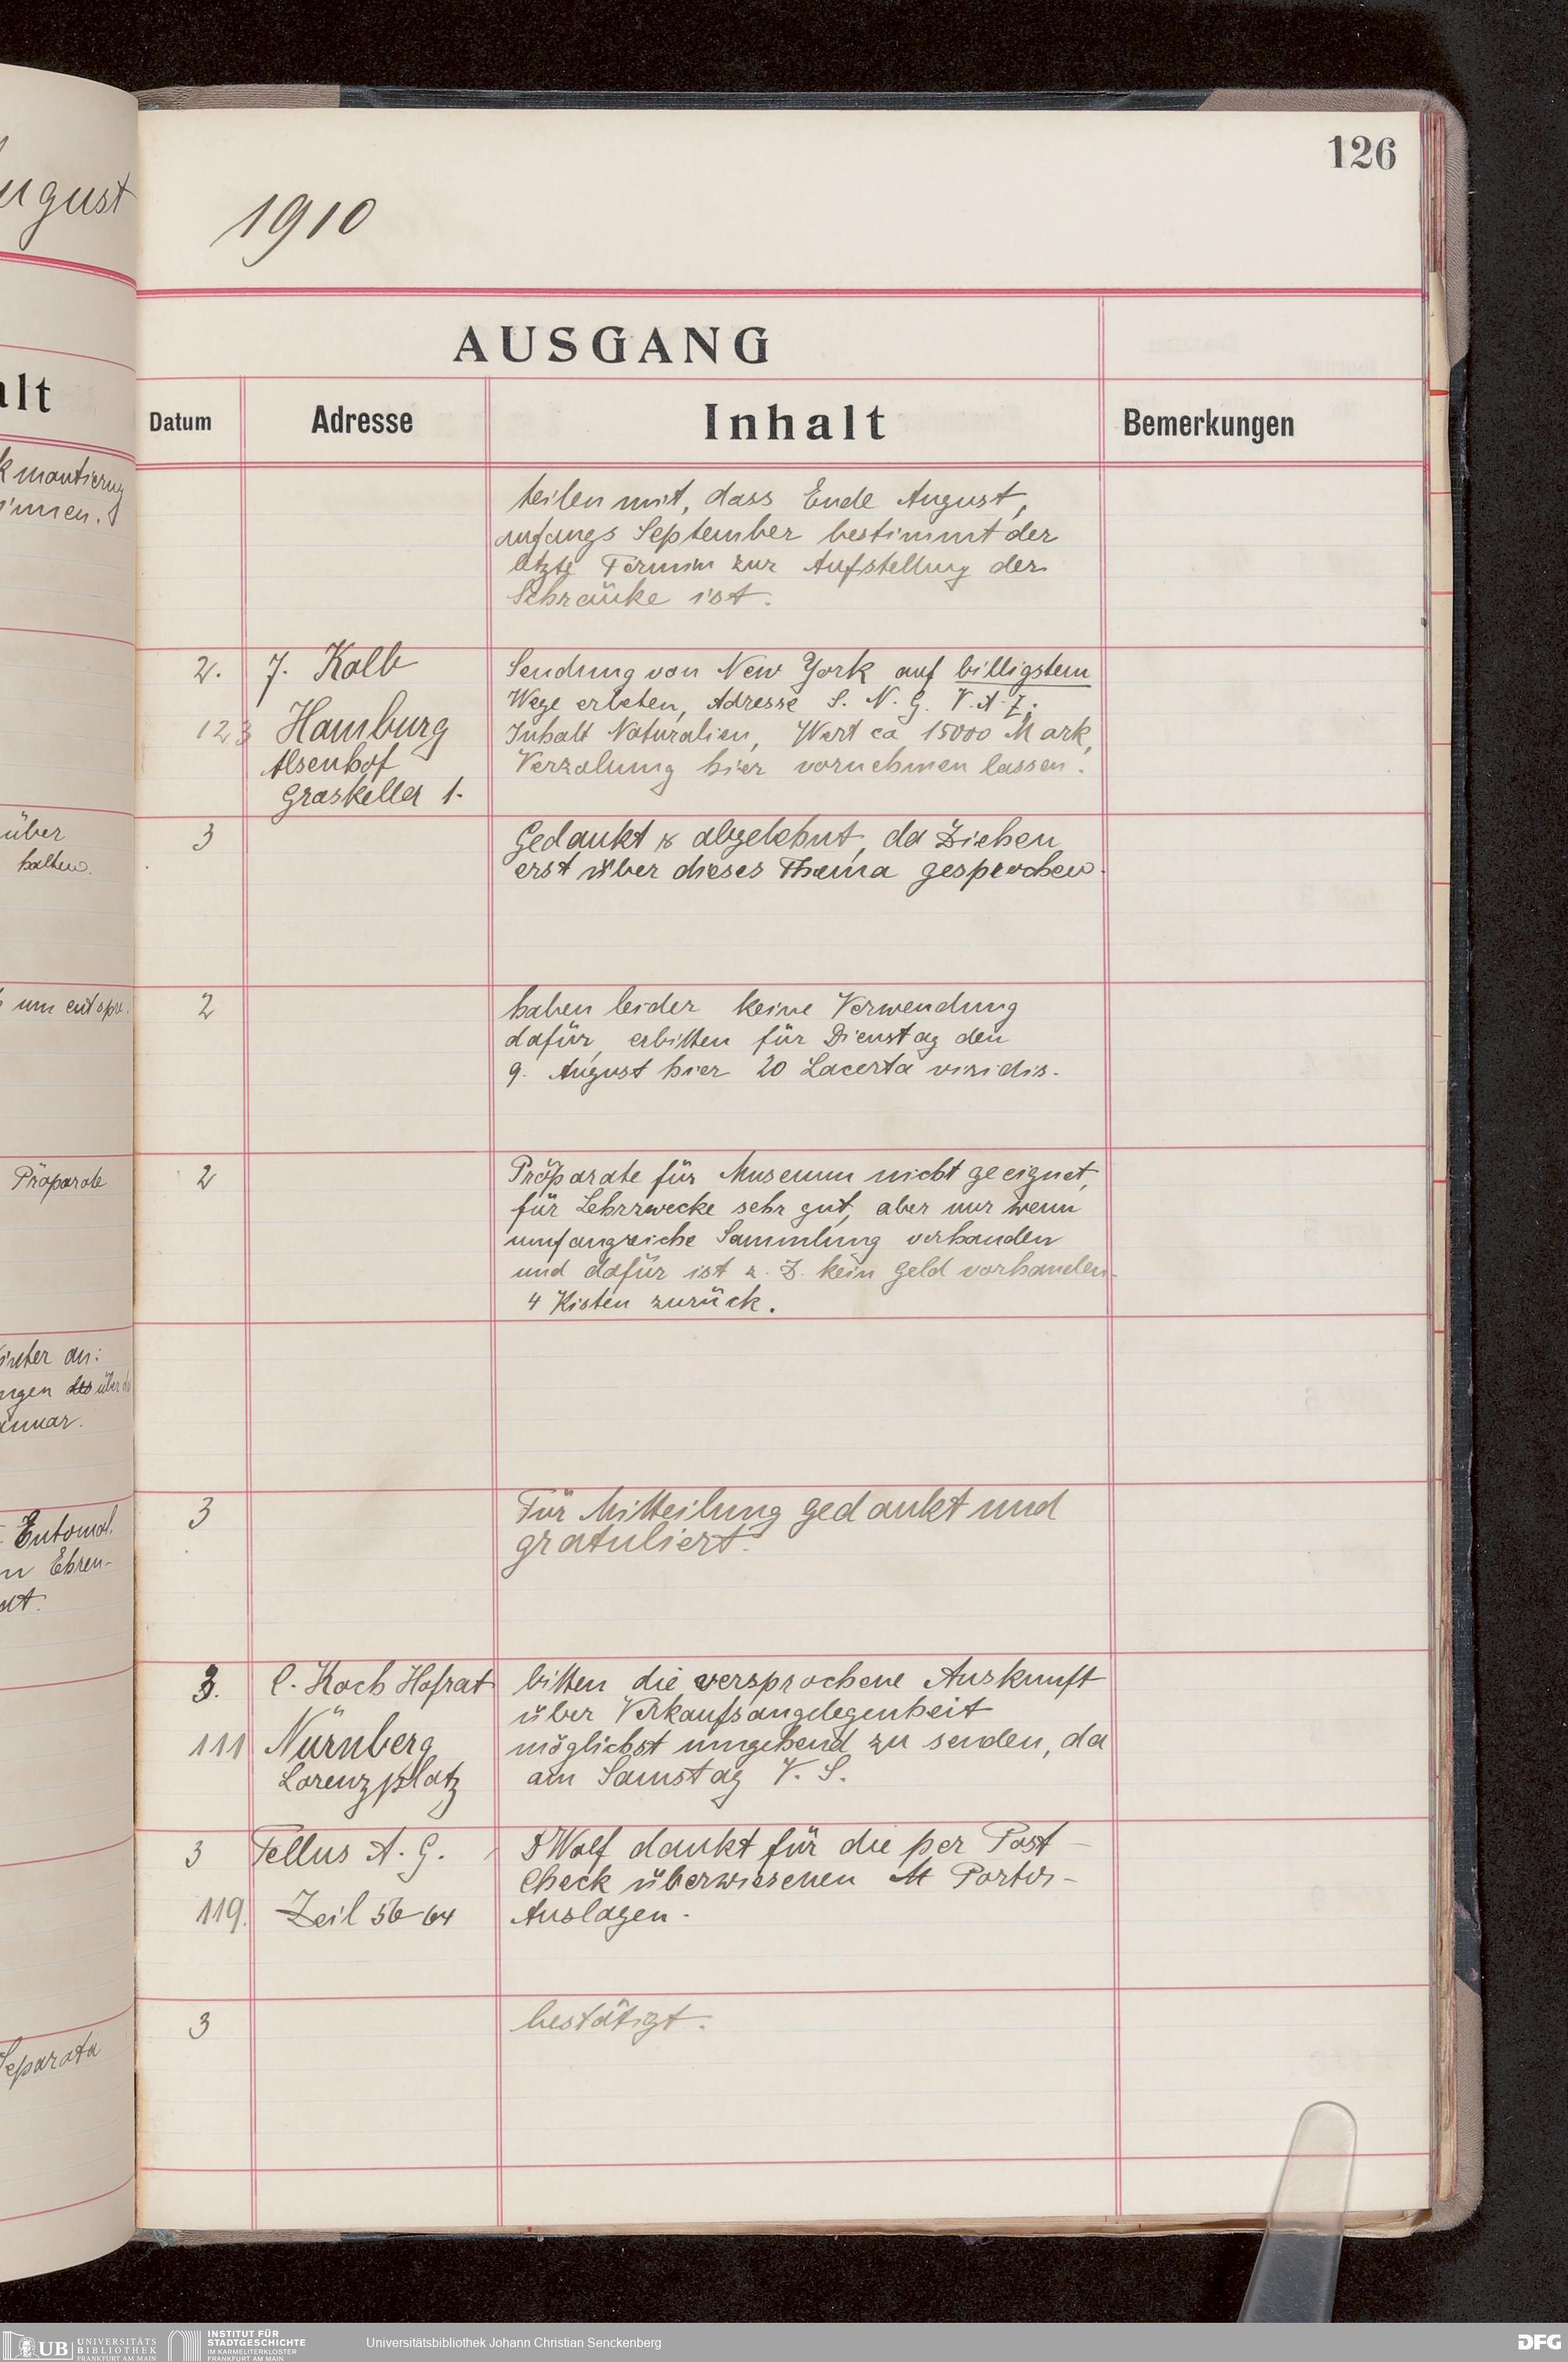 126
ugust
1910
AUSGANG
alt
Datum Adresse Inhalt Bemerkungen
teilen mit, dass Ende August,
anfangs September bestimmt der
letzte Termin zur Aufstellung der
Schränke ist.
2. J. Kalb Sendung von New York auf billigstem
Wege erbeten, Adresse S. N. G. V. A. Z.;
123 Hamburg Inhalt Naturalien, Wert ca 15000 Mark,
Alsenhof Verzolung hier vornehmen lassen.
Graskeller 1.
über
halten.
3 Gedankt & abgelehnt, da Ziehen
erst über dieses Thema gesprochen.
um entspr.
2 haben leider keine Verwendung
dafür, erbitten für Dienstag den
9. August hier 20 Lacerta viridis.
Präparate
2 Präparate für Museum nicht geeignet,
für Lehrzwecke sehr gut, aber nur wenn
umfangreiche Sammlung vorhanden
und dafür ist z. Z. kein Geld vorhanden.
4 Kisten zurück.
an:
ngen des über
anuar.
Entomol.
n Ehren-
3 Für Mitteilung gedankt und
gratuliert.
3. C. Koch Hofrat bitten die versprochene Auskunft
über Verkaufsangelegenheit
111 Nürnberg möglichst umgehend zu senden, da
Lorenzplatz am Samstag V. S.
3 Tellus A. G. Wolf dankt für die per Post-
Check überwiesenen M Porto-
119. Zeil 56-64 Auslagen.
3 bestätigt.
Separata
UB UNIVERSITÄTS
BIBLIOTHEK
FRANKFURT AM MAIN
INSTITUT FÜR
STADTGESCHICHTE
IM KARMELITERKLOSTER
FRANKFURT AM MAIN
Universitätsbibliothek Johann Christian Senckenberg
DFG